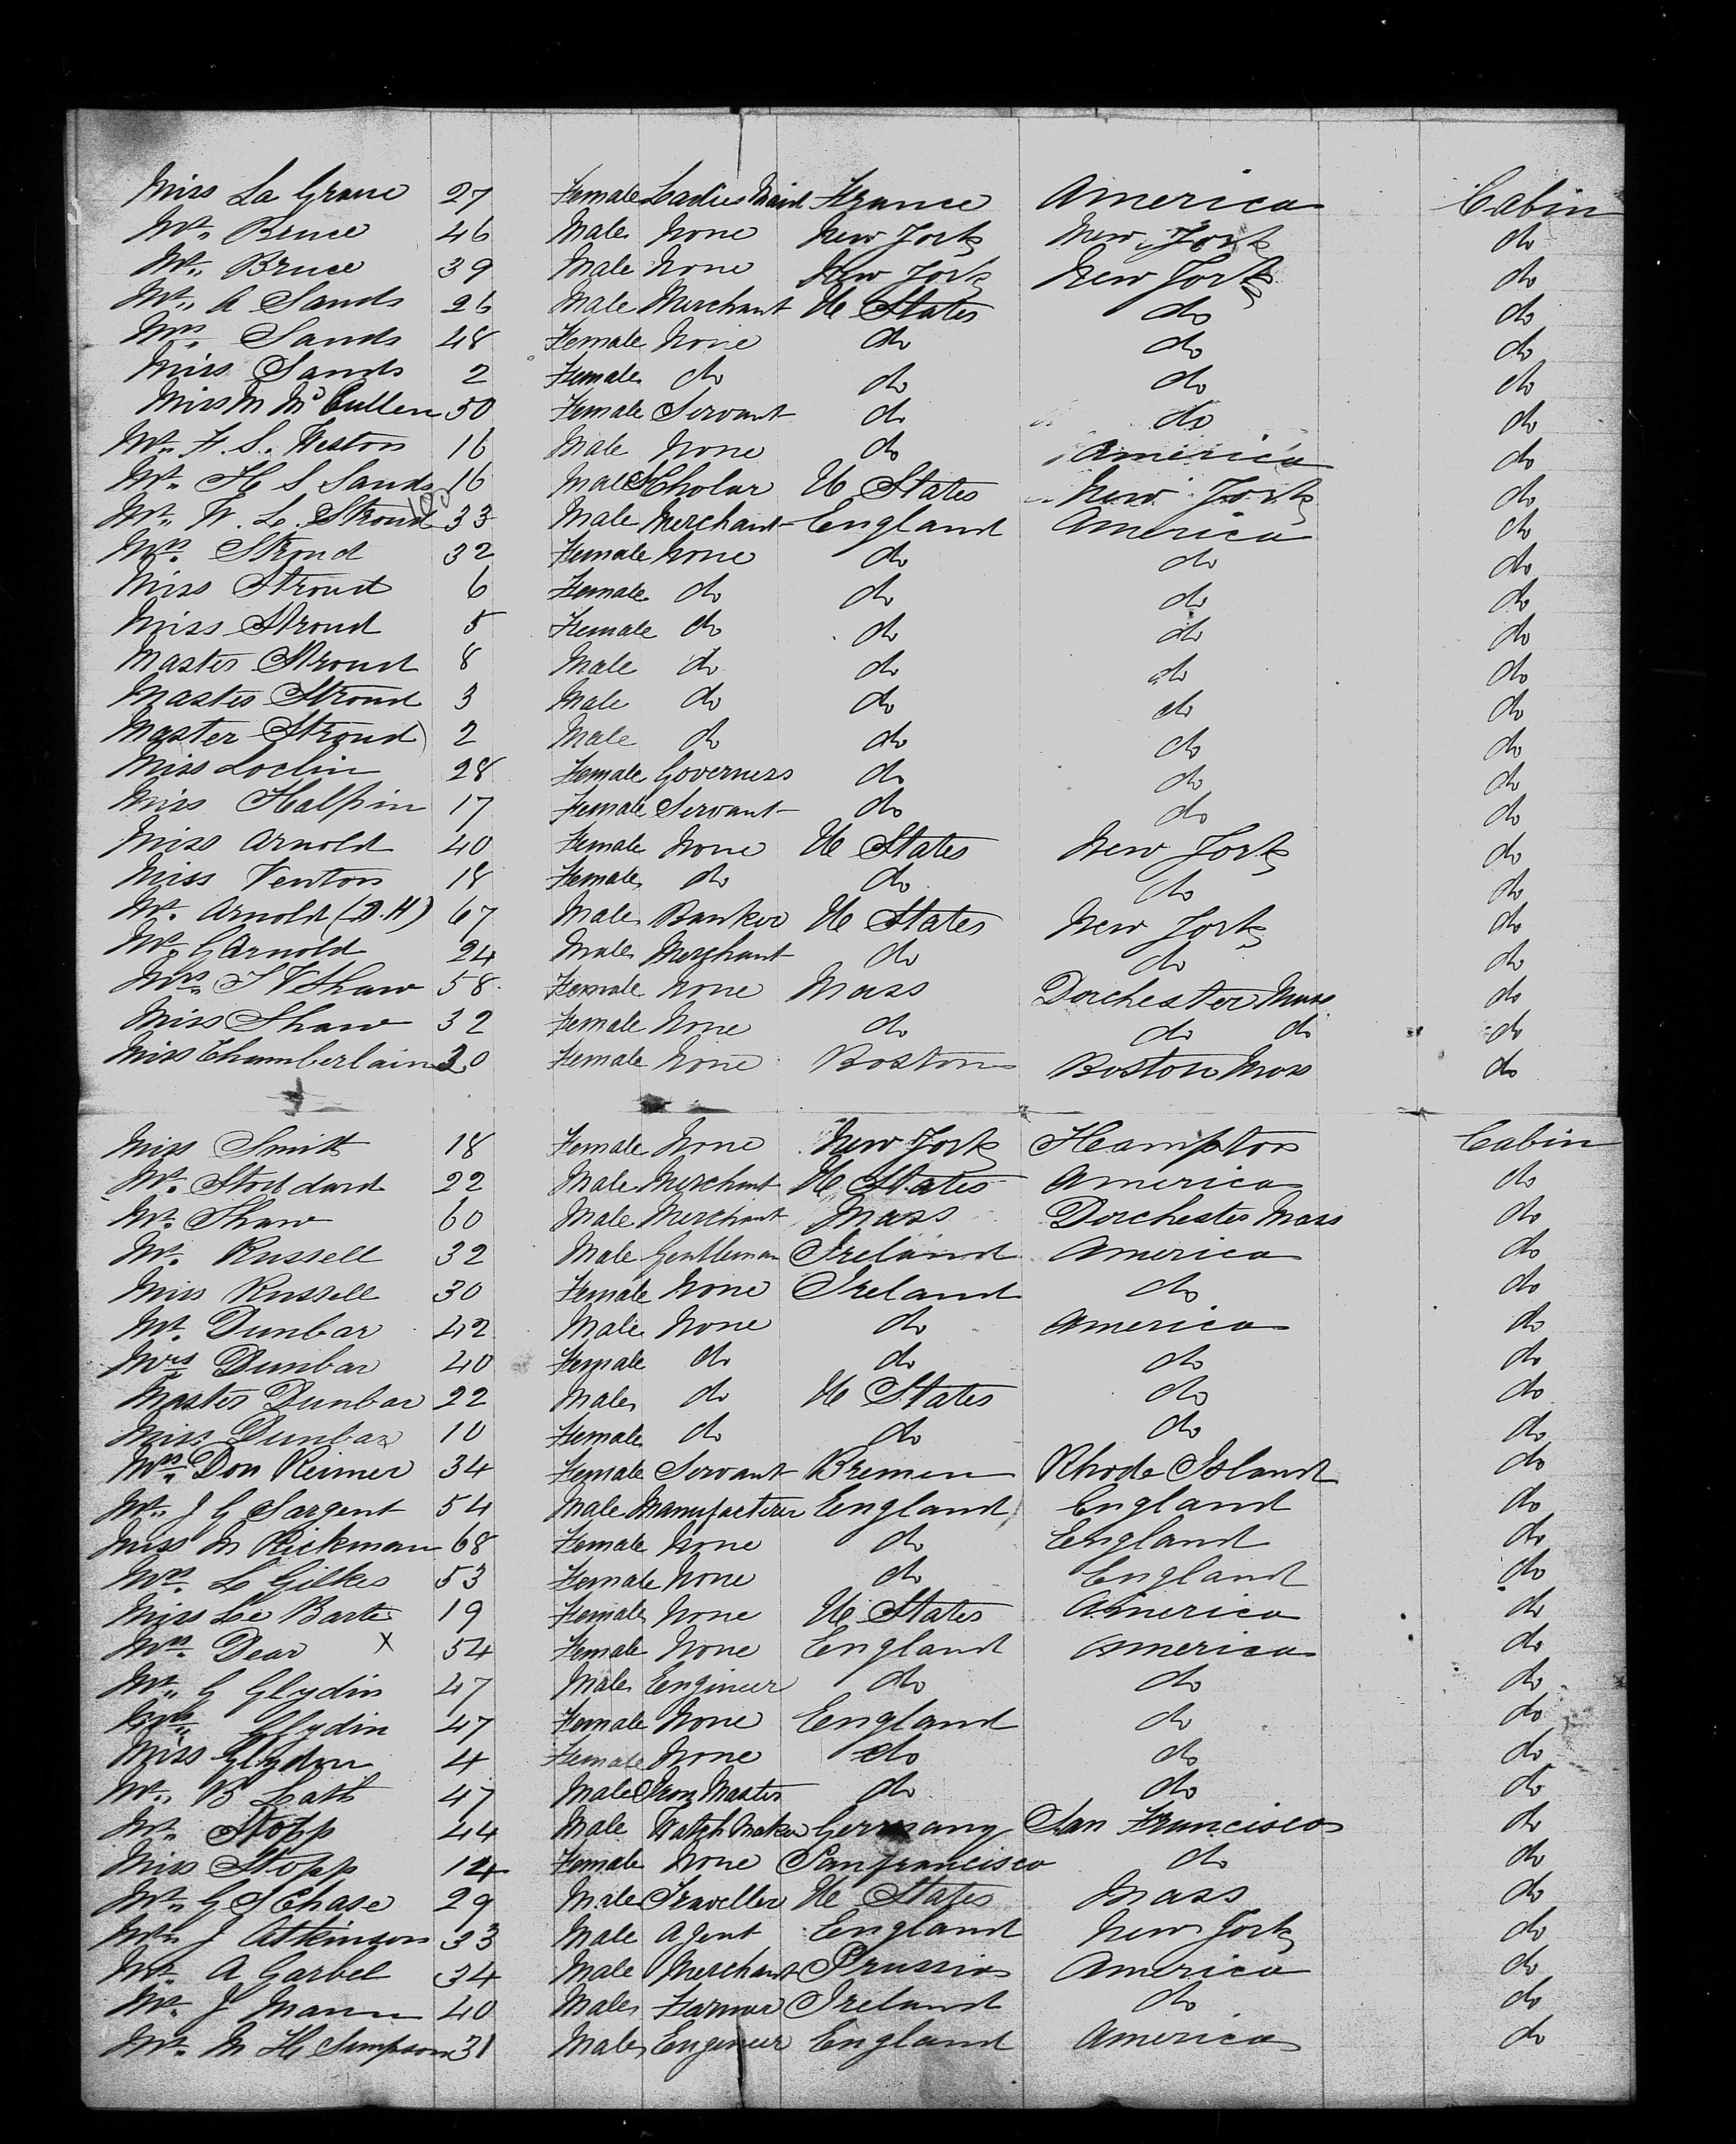 Miss La Graue 27 Female Ladies Maid France America Cabin
Mr. Bruce 46 Male None New York New York do
Mr. Bruce 39 Male None New York New York do
Mr. A Sands 26 Male Merchant U States do do
Mrs. Sands 48 Female None do do do
Miss Sands 2 Female do do do do
Miss M McCullen 50 Female Servant do do do
Mr. F. S. Weston 16 Male None do America do
Mr. H S Sands 16 Male Scholar U States New York do
Mr. W. L. Stroud 33 Male Merchant England America do
Mrs. Stroud 32 Female None do do do
Miss Stroud 6 Female do do do do
Miss Stroud 5 Female do do do do
Master Stroud 8 Male do do do do
Master Stroud 3 Male do do do do
Master Stroud 2 Male do do do do
Miss Loclin 28 Female Governess do do do
Miss Halpin 17 Female Servant do do do
Miss Arnold 40 Female None U States New York do
Miss Venton 18 Female do do do do
Mr. Arnold (D.H) 67 Male Banker U States New York do
Mr. G Arnold 24 Male Merchant do do do
Mrs. S V Shaw 58 Female None Mass Dorchester Mass do
Miss Shaw 32 Female None do do do do
Miss Chamberlain 30 Female None Boston Boston Mass do
Miss Smith 18 Female None New York Hampton Cabin
Mr. Stoddard 22 Male Merchant U States America do
Mr. Shaw 60 Male Merchant Mass Dorchester Mass do
Mr. Russell 32 Male Gentleman Ireland America do
Miss Russell 30 Female None Ireland do do
Mr. Dunbar 42 Male None do America do
Mrs Dunbar 40 Female do do do do
Master Dunbar 22 Male do U States do do
Miss Dunbar 10 Female do do do do
Mrs. Don Reimer 34 Female Servant Bremen Rhode Island do
Mr. J G Sargent 54 Male Manufacturer England England do
Miss M Rickman 68 Female None do England do
Mrs. L Gilkes 53 Female None do England do
Miss Le Barte 19 Female None U States America do
Mrs. Dear X 54 Female None England America do
Mr. G Glydin 47 Male Engineer do do do
Mrs. Glydin 47 Female None England do do
Miss Glydon 4 Female None do do do
Mr. B Lath 47 Male Iron Master do do do
Mr. Stopp 44 Male Watch Maker Germany San Francisco do
Miss Stopp 14 Female None San francisco do do
Mr. G S Chase 29 Male Traveller U States Mass do
Mr. J Atkinson 33 Male Agent England New York do
Mr. A Garbel 34 Male Merchant Prussia America do
Mr. J Mann 40 Male Farmer Ireland do do
Mr. M H Simpson 31 Male Engineer England America do